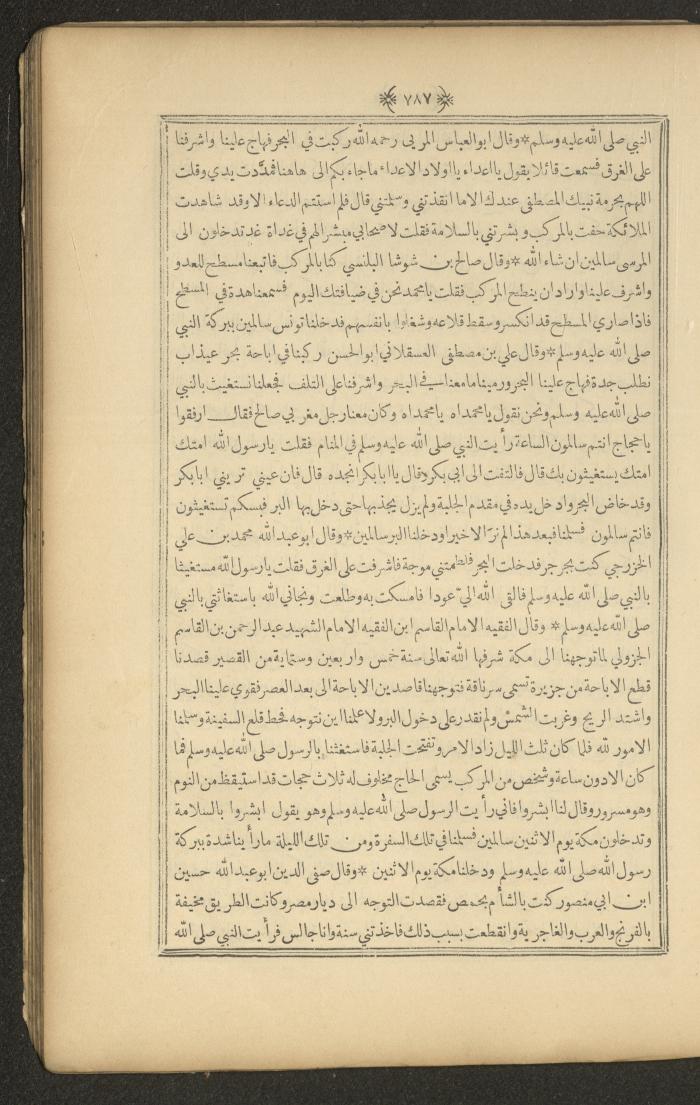 ﴿ ٧٨٧ ﴾
النبي صلى الله عليه وسلم * وقال ابوالعباس المربي رحمه الله ركبت في البحر فهاج علينا واشرفنا
على الغرق فسمعت قائلا يقول يا اعداء يا اولاد الاعداء ما جاء بكم الى هاهنا فمدَّدت يدي وقلت
اللهم بحرمة نبيك المصطفى عندك الا ما انقذتني وسلمتني قال فلم استتم الدعاء الا وقد شاهدت
الملائكة حفت بالمركب وبشرتني بالسلامة فقلت لاصحابي مبشرا لهم في غداة غد تدخلون الى
المرسى سالمين ان شاء الله * وقال صالح بن شوشا البلنسي كنا بالمركب فاتبعنا مسطح للعدو
واشرف علينا واراد ان ينطح المركب فقلت يا محمد نحن في ضيافتك اليوم فسمعنا هدة في المسطح
فاذا صاري المسطح قد انكسر وسقط قلاعه وشغلوا بانفسهم فدخلنا تونس سالمين ببركة النبي
صلى الله عليه وسلم * وقال علي بن مصطفى العسقلاني ابوالحسن ركبنا في اباحة بحر عيذاب
نطلب جدة فهاج علينا البحر ورمينا ما معنا في البحر واشرفنا على التلف فجعلنا نستغيث بالنبي
صلى الله عليه وسلم ونحن نقول يا محمداه يا محمداه وكان معنا رجل مغربي صالح فقال ارفقوا
يا حجاج انتم سالمون الساعة رأيت النبي صلى الله عليه وسلم في المنام فقلت يا رسول الله امتك
امتك يستغيثون بك قال فالتفت الى ابي بكر وقال يا ابا بكر انجده قال فان عيني تريني ابا بكر
وقد خاض البحر وادخل يده في مقدم الجلبة ولم يزل يجذبها حتى دخل بها البر فبسكم تستغيثون
فانتم سالمون فسلمنا فبعد هذا لم نر الا خيرا ودخلنا البر سالمين * وقال ابو عبد الله محمد بن علي
الخزرجي كنت ببحر جر فدخلت البحر فلطمتني موجة فاشرفت على الغرق فقلت يا رسول الله مستغيثا
بالنبي صلى الله عليه وسلم فالقى الله اليّ عودا فامسكت به وطلعت ونجاني الله باستغاثتي بالنبي
صلى الله عليه وسلم * وقال الفقيه الامام القاسم ابن الفقيه الامام الشهيد عبد الرحمن بن القاسم
الجزولي لما توجهنا الى مكة شرفها الله تعالى سنة خمس واربعين وستماية من القصير قصدنا
قطع الاباحة من جزيرة تسمى سرناقة فتوجهنا قاصدين الاباحة الى بعد العصر فقوي علينا البحر
واشتد الريح وغربت الشمس ولم نقدر على دخول البر ولا علمنا اين نتوجه فحط قلع السفينة وسلمنا
الامور لله فلما كان ثلث الليل زاد الامر وتفتحت الجلبة فاستغثنا بالرسول صلى الله عليه وسلم فما
كان الا دون ساعة وشخص من المركب يسمى الحاج مخلوف له ثلاث حجات قد استيقظ من النوم
وهو مسرور وقال لنا ابشروا فاني رأيت الرسول صلى الله عليه وسلم وهو يقول ابشروا بالسلامة
وتدخلون مكة يوم الاثنين سالمين فسلمنا في تلك السفرة ومن تلك الليلة ما رأينا شدة ببركة
رسول الله صلى الله عليه وسلم ودخلنا مكة يوم الاثنين * وقال صفي الدين ابو عبد الله حسين
ابن ابي منصور كنت بالشأم بحمص فقصدت التوجه الى ديار مصر وكانت الطريق مخيفة
بالفرنج والعرب والغاجرية وانقطعت بسبب ذلك فاخذتني سنة وانا جالس فرأيت النبي صلى الله